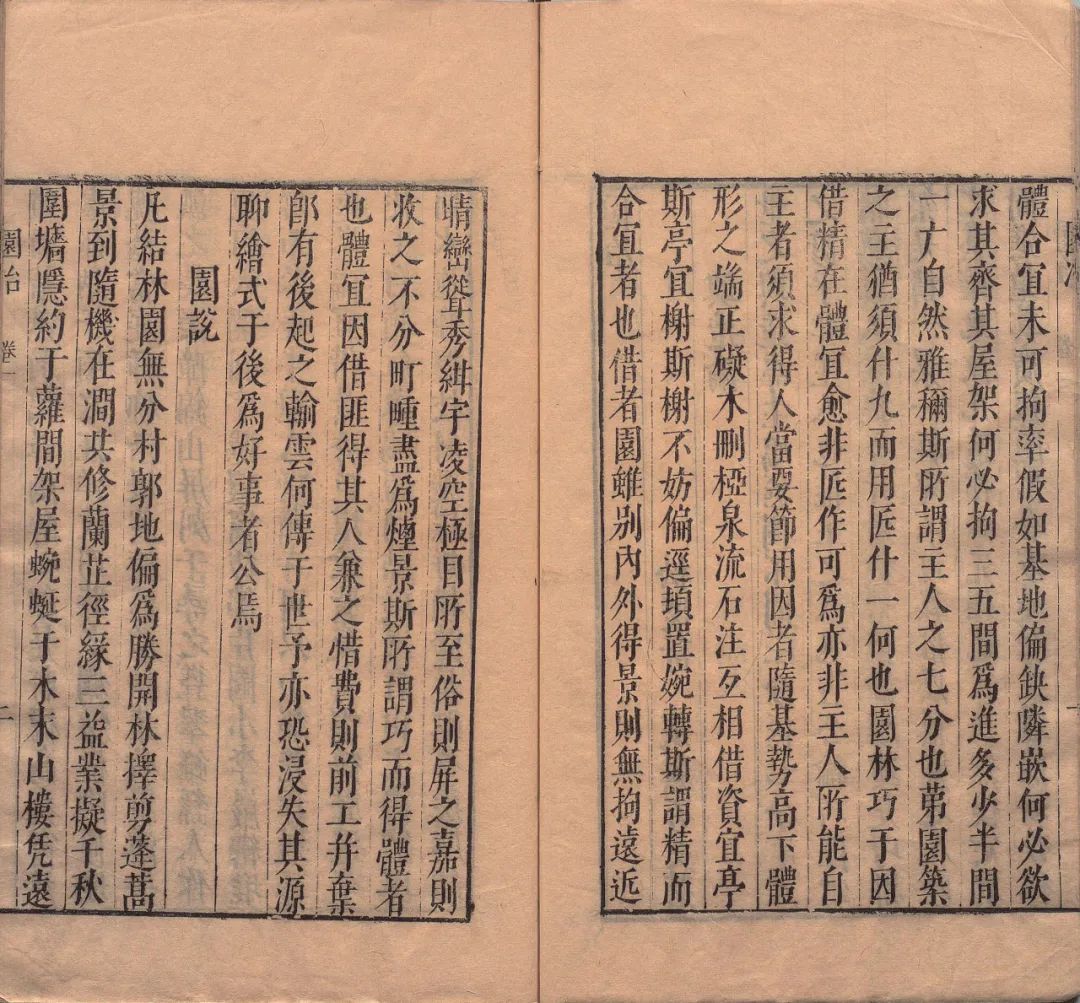 園冶
體合宜未可拘率假如基地偏缺隣嵌何必欲
求其齊其屋架何必拘三五間爲進多少半間
一广自然雅稱斯所謂主人之七分也苐園築
之主猶須什九而用匠什一何也園林巧于因
借精在體宜愈非匠作可爲亦非主人所能自
主者須求得人當要節用因者隨基勢高下體
形之端正礙木刪椏泉流石注互相借資宜亭
斯亭宜榭斯榭不妨偏逕頓置婉轉斯謂精而
合宜者也借者園雖别內外得景則無拘遠近
晴巒聳秀紺宇凌空極目所至俗則屏之嘉則
收之不分町疃盡爲煙景斯所謂巧而得體者
也體宜因借匪得其人兼之惜費則前工幷棄
卽有後起之輸雲何傳于世予亦恐浸失其源
聊繪式于後爲好事者公焉
園說
凡結林園無分村郭地偏爲勝開林擇剪蓬蒿
景到隨機在澗共修蘭芷徑緣三益業擬千秋
圍墻隱約于蘿間架屋蜿蜒于木末山樓凭遠
園冶
卷一
二